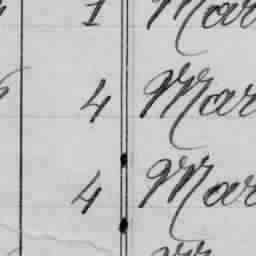 1 Mar
4 Mar
4 Mar